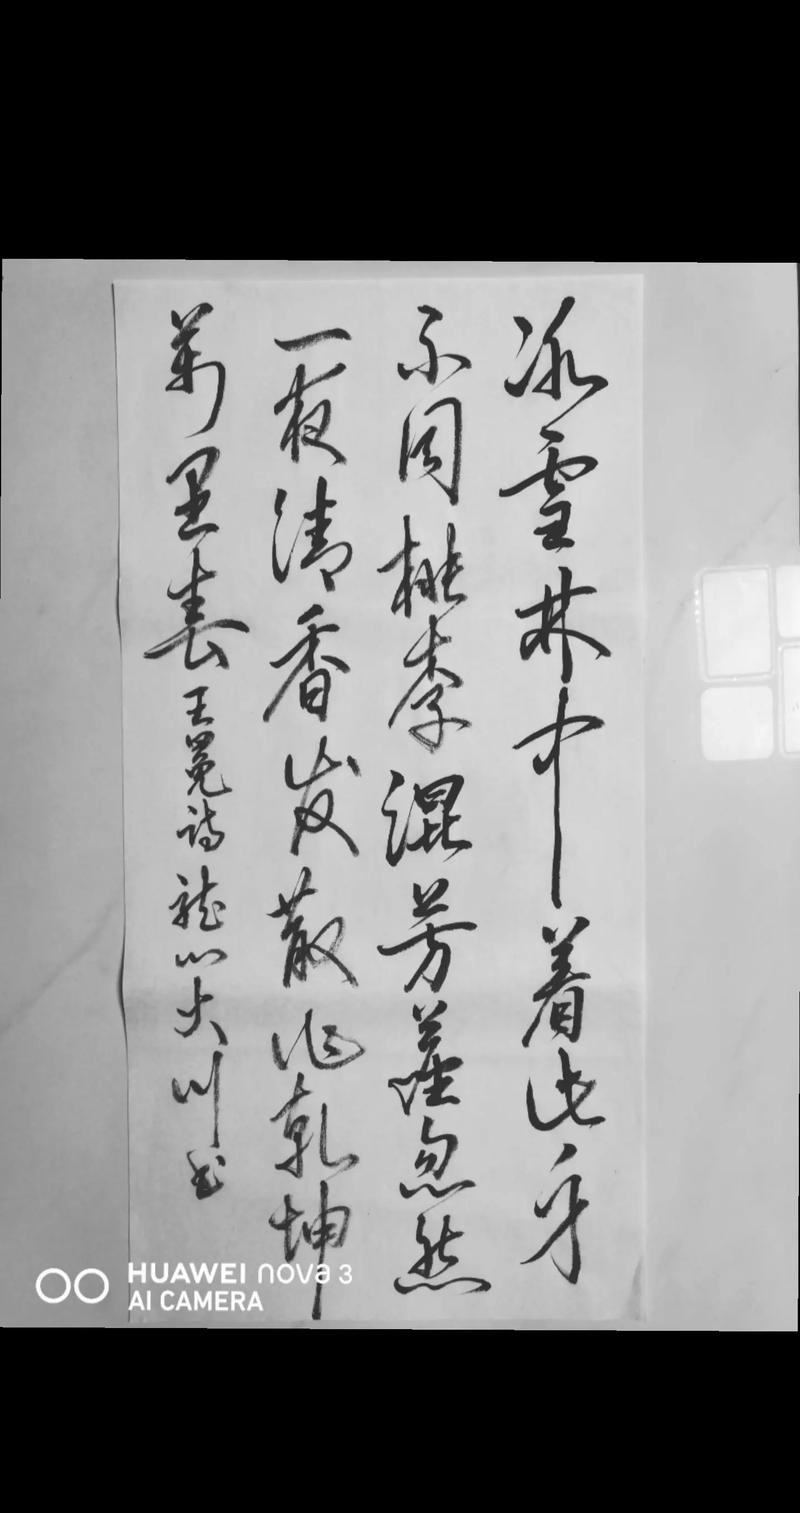 冰雪林中着此身
不同桃李混芳尘忽然
一夜清香发散作乾坤
万里春 王冕诗 龙山大川书
HUAWEI nova 3
AI CAMERA